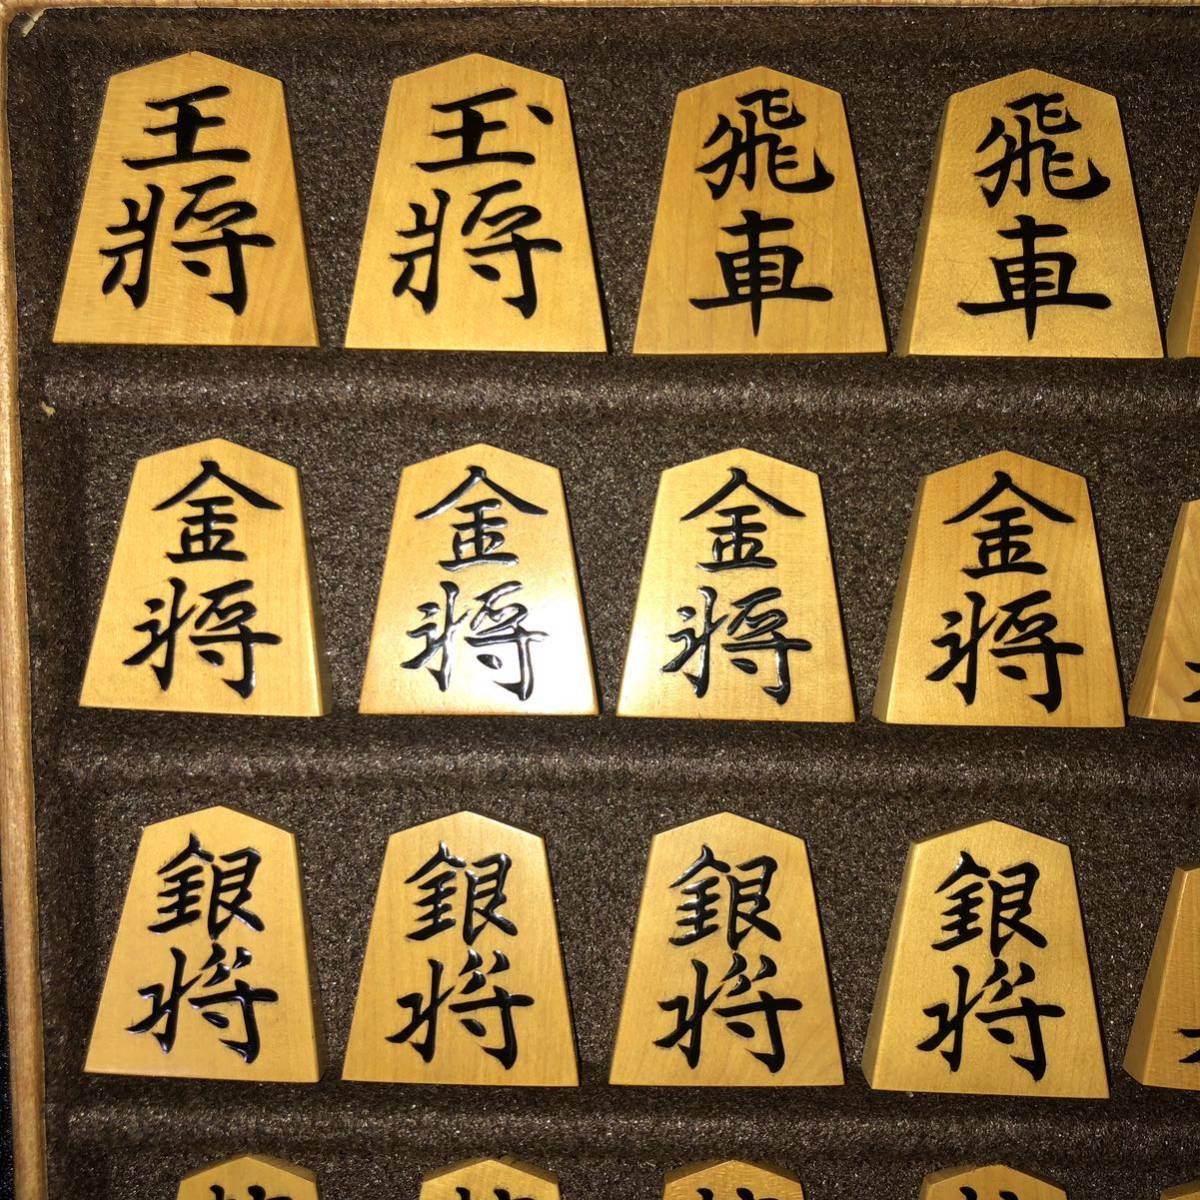 王將
玉將
飛車
飛車
金将
金将
金将
金将
銀将
銀将
銀将
銀将